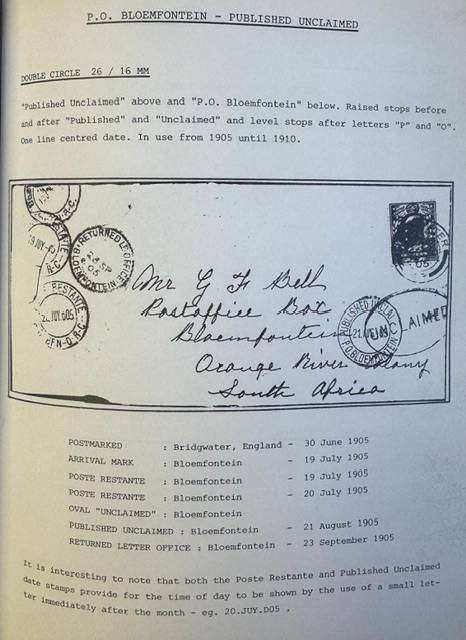 P.O. BLOEMFONTEIN - PUBLISHED UNCLAIMED
DOUBLE CIRCLE 26 / 16 MM
"Published Unclaimed" above and "P.O. Bloemfontein" below. Raised stops before
and after "Published" and "Unclaimed" and level stops after letters "P" and "O".
One line centred date. In use from 1905 until 1910.
RETURNED LETTER OFFICE
BLOEMFONTEIN
RESTANTE
Mr G F Bell
Postoffice Box
Bloemfontein
Orange River Colony
South Africa
PUBLISHED UNCLAI
P.O. BLOEMFONTEIN
UNCLAIMED
POSTMARKED : Bridgwater, England - 30 June 1905
ARRIVAL MARK : Bloemfontein - 19 July 1905
POSTE RESTANTE : Bloemfontein - 19 July 1905
POSTE RESTANTE : Bloemfontein - 20 July 1905
OVAL "UNCLAIMED" : Bloemfontein
PUBLISHED UNCLAIMED : Bloemfontein - 21 August 1905
RETURNED LETTER OFFICE : Bloemfontein - 23 September 1905
It is interesting to note that both the Poste Restante and Published Unclaimed
date stamps provide for the time of day to be shown by the use of a small let-
ter immediately after the month - eg. 20.JUY.D05 .